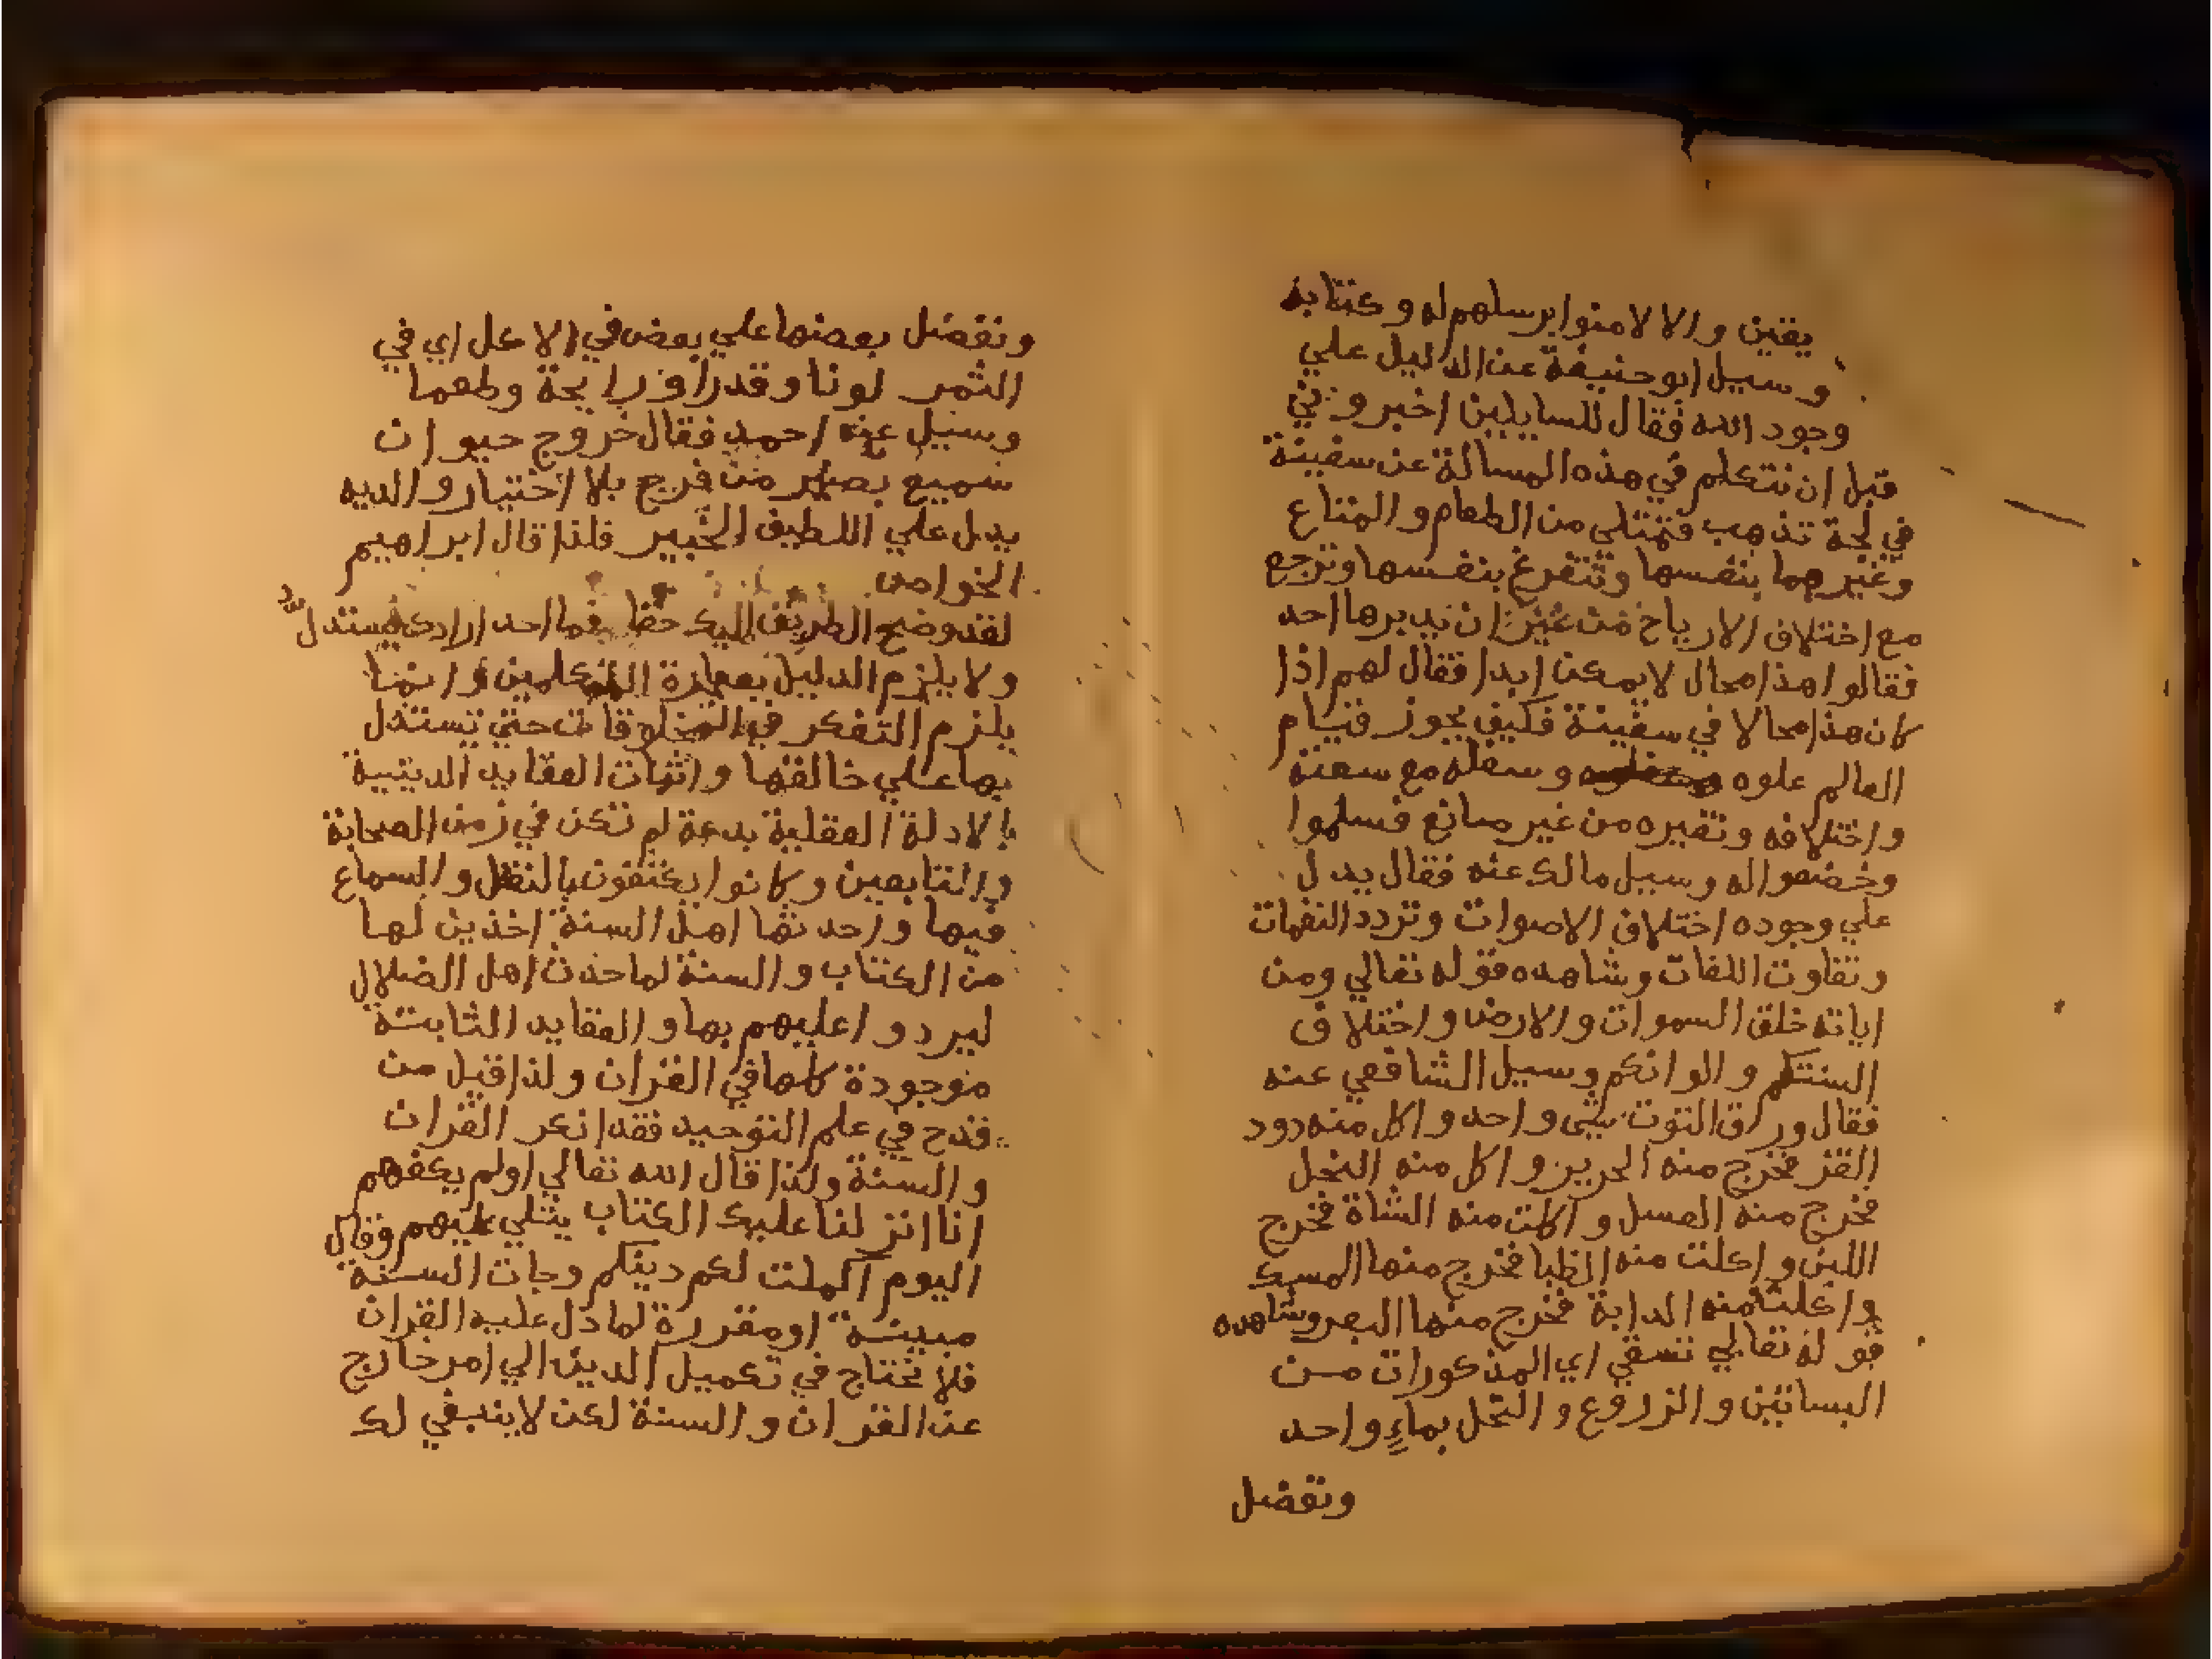 يقين والا لامنوا برسلهم له وكتابه
وسيل ابو حنيفة عن الدليل علي
وجود الله فقال للسايلين اخبروني
قبل ان نتكلم في هذه المسالة عن سفينة
في لجة تذهب فتمتلي من الطعام والمتاع
وغيرهما بنفسها وتتفرغ بنفسها وترجع
مع اختلاف الارياح من غير ان يدبرها احد
فقالوا هذا محال لا يمكن ابدا فقال لهم اذا
كان هذا محالا في سفينة فكيف يجوز قيام
العالم علوه وسفله مع سعته
واختلافه وتغيره من غير صانع فسلموا
وخضعوا له وسيل مالك عنه فقال يدل
علي وجوده اختلاف الاصوات وتردد النغمات
وتفاوت اللغات وشاهده قوله تعالي ومن
اياته خلق السموات والارض واختلاف
السنتكم والوانكم وسيل الشافعي عنه
فقال وراق التوت شي واحد واكل منه دود
القز فخرج منه الحرير واكل منه النحل
فخرج منه العسل واكلت منه الشاة فخرج
اللبن واكلت منه الظبا فخرج منها المسك
واكلت منه الدابة فخرج منها البعر وشاهده
قوله تعالي تسقي اي المذكورات من
البساتين والزروع والنخل بماءٍ واحد
ونفضل
ونفضل بعضها علي بعض في الاكل اي في
الثمر لونا وقدرا ورايحة وطعما
وسيل عنه احمد فقال خروج حيوان
سميع بصير من فرج بلا اختيار والديه
يدل علي اللطيف الخبير فلذا قال ابراهيم
الخواص
لقد وضح الطريق اليك حقا فما احد ارادك يستدلّ
ولا يلزم الدليل بعبارة المتكلمين وانما
يلزم التفكر في المخلوقات حتي تستدل
بها علي خالقها واثبات العقايد الدينية
بالادلة العقلية بدعة لم تكن في زمن الصحابة
والتابعين وكانوا يكتفون بالنقل والسماع
فيها واحدثها اهل السنة اخذين لها
من الكتاب والسنة لما حدث اهل الضلال
ليردوا عليهم بها والعقايد الثابتة
موجودة كلها في القران ولذا قيل من
قدح في علم التوحيد فقد انكر القران
والسنة ولذا قال الله تعالي اولم يكفهم
انا انزلنا عليك الكتاب يتلي عليهم وقال
اليوم اكملت لكم دينكم وجات السنة
مبينة او مقررة لما دل عليه القران
فلا نحتاج في تكميل الدين الي امر خارج
عن القران والسنة لكن لا ينبغي لك